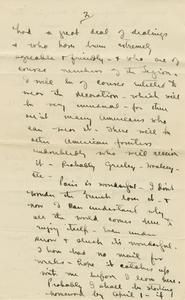 3
had a great deal of dealings
& who have been extremely
agreeable & friendly - & who are of
course members of the Legion.
I will be of course entitled to
wear the decoration - which will
be very unusual - for then
not many Americans who
can wear it. There will be
other American
who will receive
it - Probably Greeley, Wallace,
etc -
Paris is wonderful - I don't
wonder the French love it - &
now I can understand why
all the world comes here to
enjoy itself - Even under
snow & slush its wonderful.
I have had no mail for
weeks - Hope it catches up
with me before I move from
Probably I shall be starting
homeward by April 1 - if I